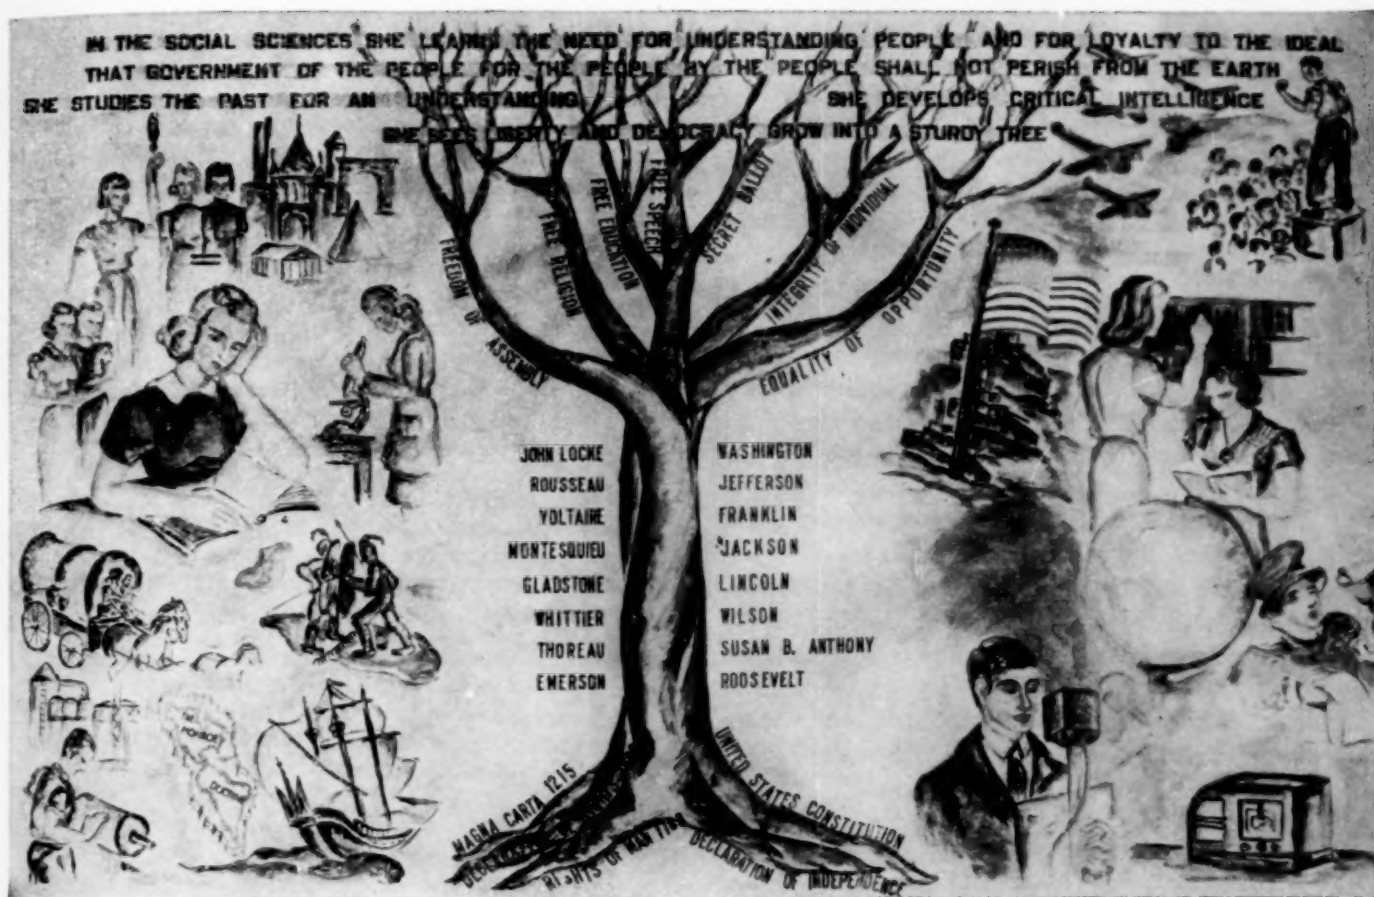 IN THE SOCIAL SCIENCES SHE LEARNS THE NEED FOR UNDERSTANDING PEOPLE AND FOR LOYALTY TO THE IDEAL
THAT GOVERNMENT OF THE PEOPLE FOR THE PEOPLE BY THE PEOPLE SHALL NOT PERISH FROM THE EARTH
SHE STUDIES THE PAST FOR AN UNDERSTANDING
SHE DEVELOPS CRITICAL INTELLIGENCE
SHE SEES LIBERTY AND DEMOCRACY GROW INTO A STURDY TREE
FREEDOM OF ASSEMBLY
FREE RELIGION
FREE EDUCATION
FREE SPEECH
SECRET BALLOT
INTEGRITY OF INDIVIDUAL
EQUALITY OF OPPORTUNITY
JOHN LOCKE
ROUSSEAU
VOLTAIRE
MONTESQUIEU
GLADSTONE
WHITTIER
THOREAU
EMERSON
WASHINGTON
JEFFERSON
FRANKLIN
JACKSON
LINCOLN
WILSON
SUSAN B. ANTHONY
ROOSEVELT
MONROE
MAGNA CARTA 1215
RIGHTS OF MAN
DECLARATION OF INDEPENDENCE
UNITED STATES CONSTITUTION